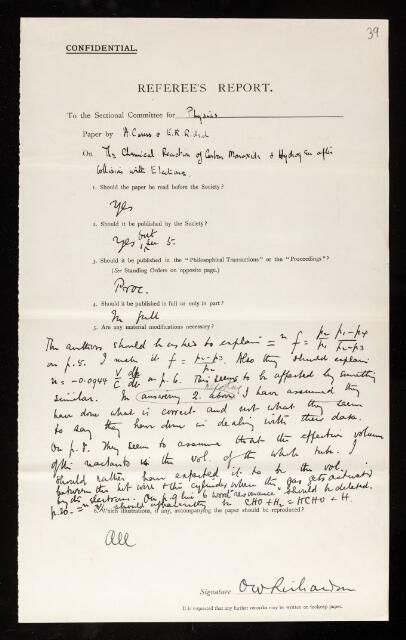 39
CONFIDENTIAL.
REFEREE'S REPORT.
To the Sectional Committee for Physics
Paper by A. Caress & E. K. Rideal
On The Chemical Reaction of Carbon Monoxide & Hydrogen after
Collision with Electrons.
1. Should the paper be read before the Society?
Yes
2. Should it be published by the Society?
Yes but see 5.
3. Should it be published in the "Philosophical Transactions" or the "Proceedings"?
(See Standing Orders on opposite page.)
Proc.
4. Should it be published in full or only in part?
In full
5. Are any material modifications necessary?
The authors should be asked to explain = " f = p2/p1 p1-p4/p2-p3
on p. 5. I make it f = p2-p3/p2. Also they should explain
n = -0.0944 V/C dp/dt on p. 6. This seems to be affected by something
similar. In answering 2 above I have assumed they
have done what is correct and not what they seem
to say they have done in dealing with their data.
On p. 8. They seem to assume that the effective volume
of the reactants is the vol. of the whole tube. I
should rather have expected it to be the vol.
between the hot wire & the cylinder where the gas gets activated
by the electrons. On p. 9 line 6 word "resonance" should be deleted.
p. 20. = " should apparently be CHO + H2 = HCHO + H.
6. Which illustrations, if any, accompanying the paper should be reproduced?
All
Signature O W Richardson
It is requested that any further remarks may be written on foolscap paper.